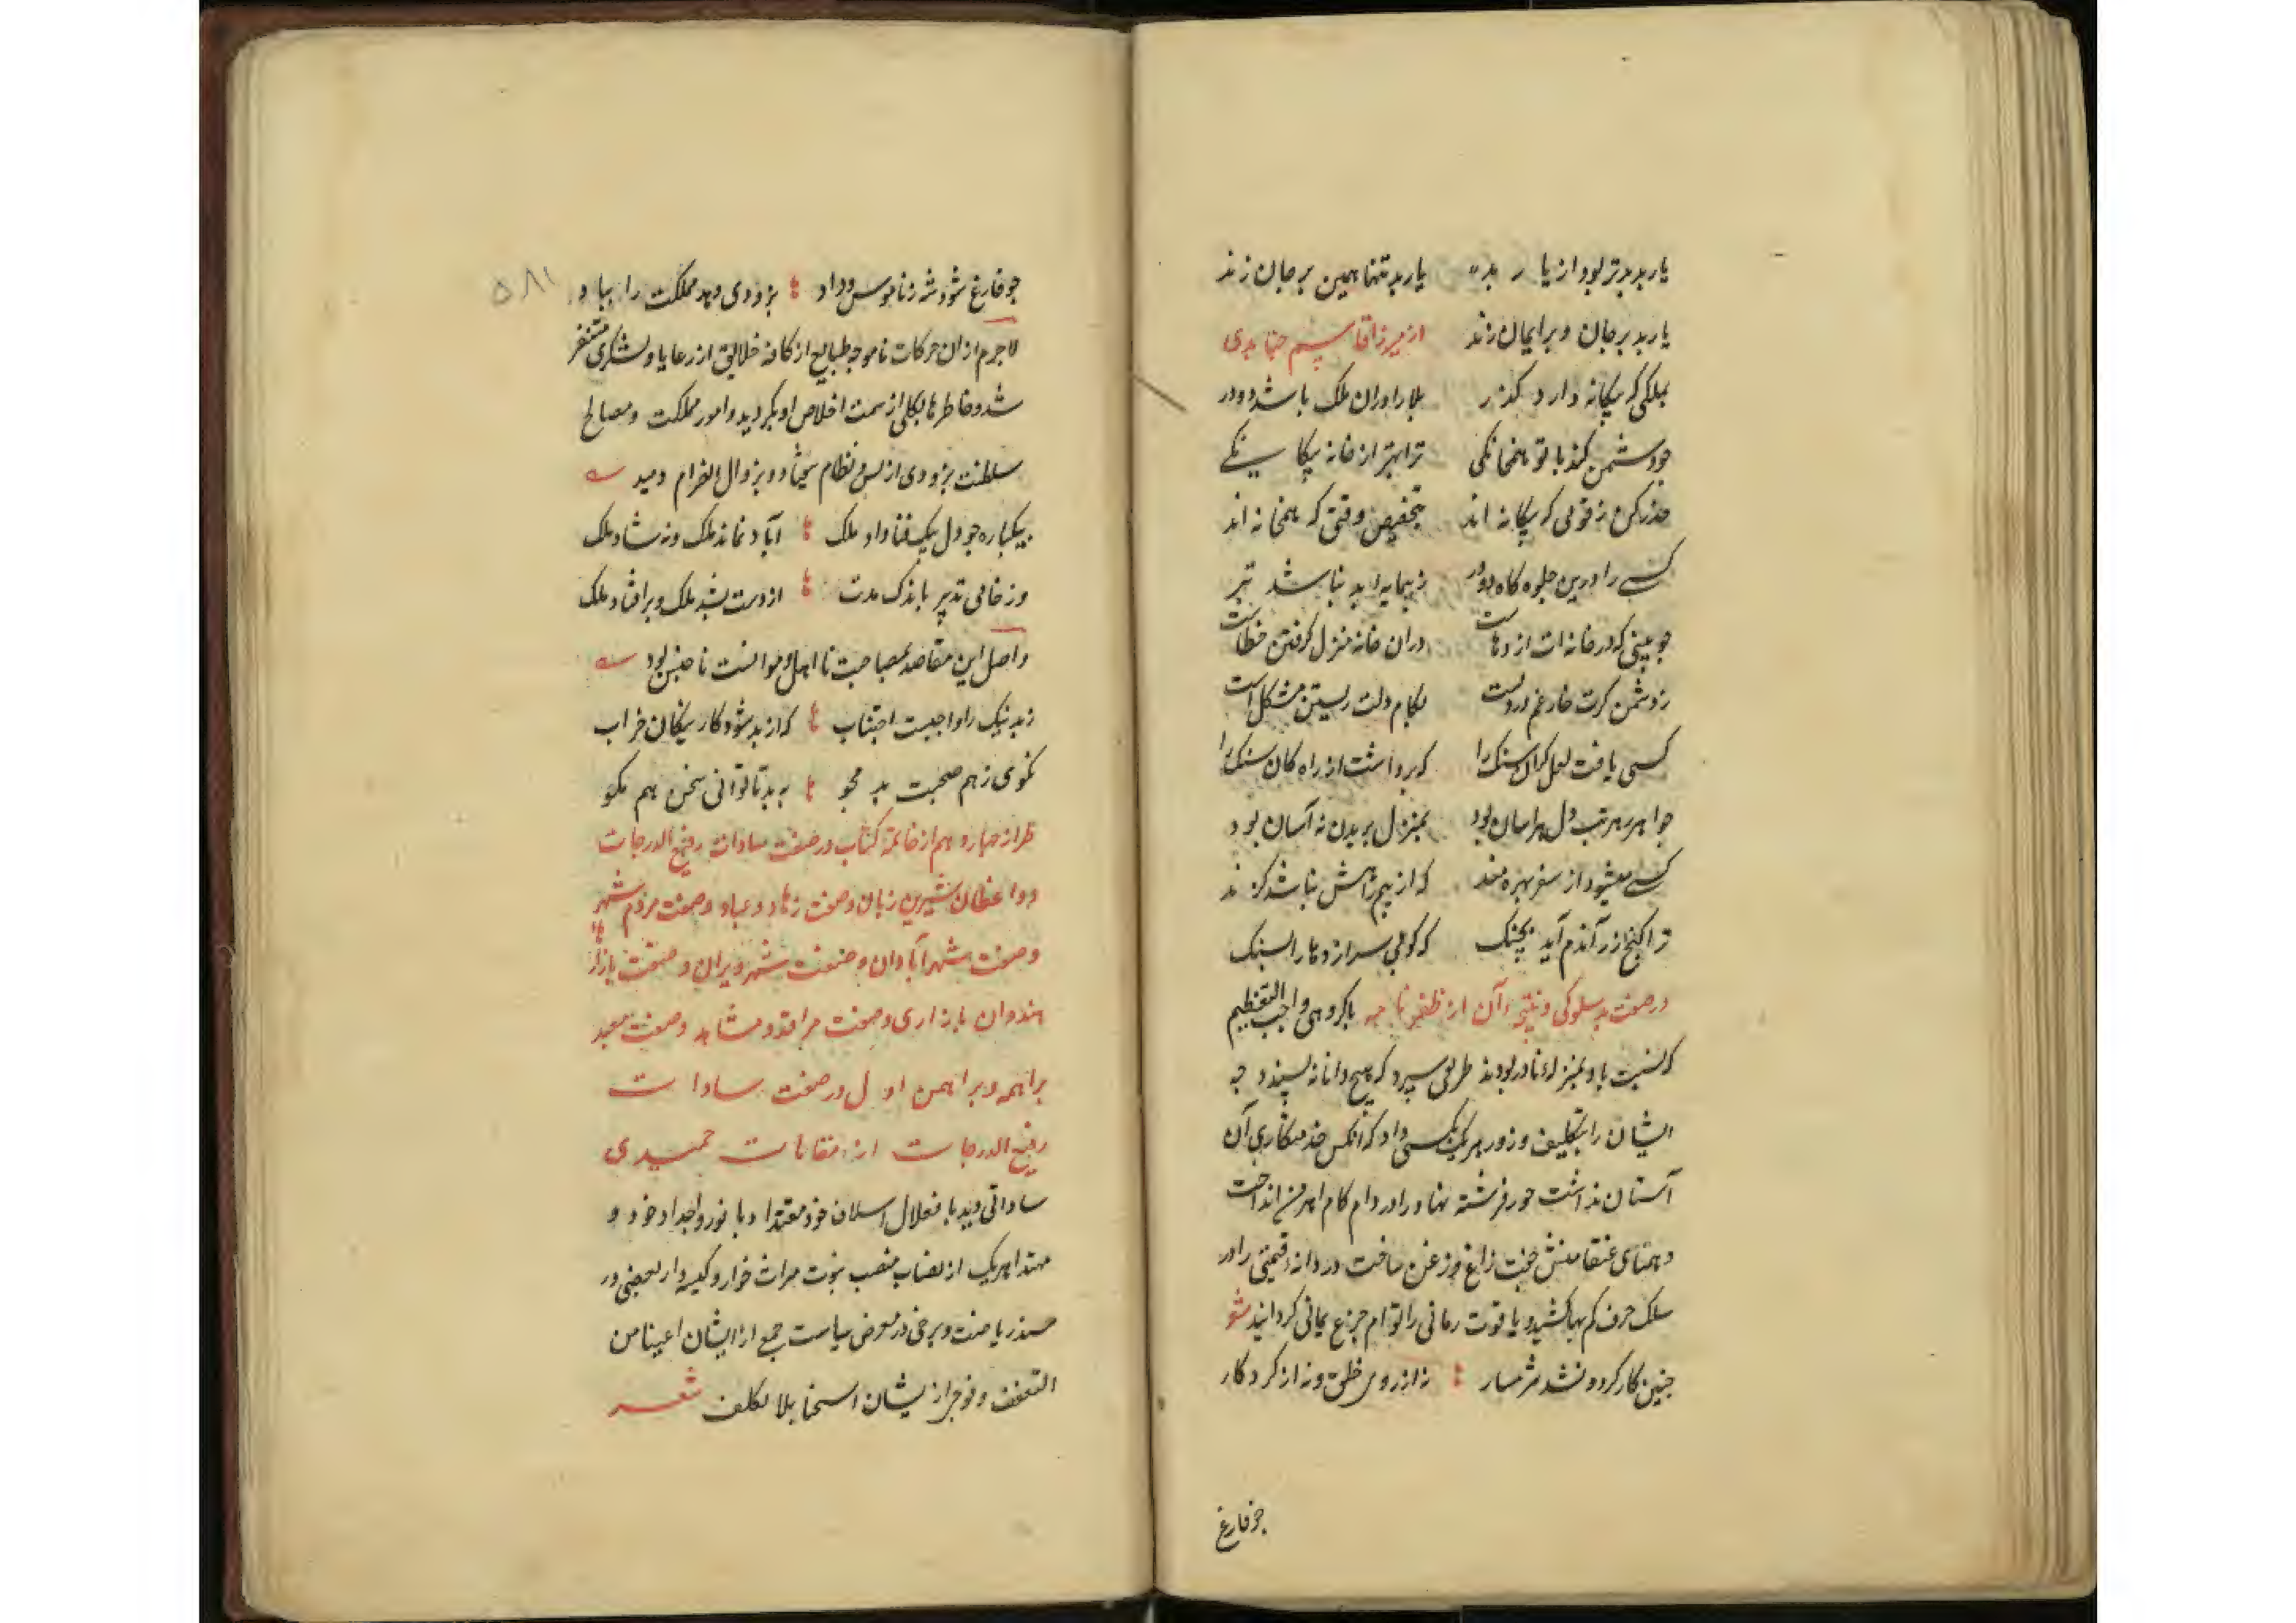 یار بد بدتر بود از یار بد یار بد تنها همین بر جان زند
یار بد بر جان و بر ایمان زند از میرزا قاسم جنابدی
بملکی که بیکانه دارد کذر بلا را دران ملک باشد و در
جو دشمن کند با تو همخانکی ترا بهتر از خانه بیکانکی
حذر کن ز قومی که بیکانه اند بتخصیص وقتی که همخانه اند
کسی را درین جلوه کاه دودر ز همسایه بد نباشد بتر
جو بینی که در خانه ات اژدهاست دران خانه منزل کرفتن خطاست
ز دشمن کرت خار غم در دلست بکام دلت زیستن مشکل است
کسی یافت لعل کران سنک را که برداشت از راه کان سنک را
جو همره مرتب دل هراسان بود بمنزل بریدن نه آسان بود
کسی میشود از سفر بهره مند که از بیم راهش نباشد کزند
ترا کنج زر آندم آید بچنک که کوبی سر اژدها را بسنک
در صفت بد سلوکی و نتیجه آن از ظفرنامه با کروهی واجب التعظیم
که نسبت باو بمنزله مادر بودند طریقی سپرد که هیچ دانا نه پسندد چه
ایشان را بتکلیف و زور هر یک بکسی داد که آنکس خدمتکاری آن
آستان نداشت حور فرشته نهاد را در دام کام اهرمن انداخت
و همتای عنقا منش جفت زاغ و زغن ساخت در دانه قیمتی را در
سلک خزف کم بها کشید و یاقوت رمانی را توام جزع یمانی کردانید شعر
جنین کار کرد و نشد شرمسار نه از روی خلق و نه از کردکار
جو فارغ
۵۸۱
جو فارغ شود شه ز ناموس و داد بزودی دهد مملکت را بباد
لاجرم ازان حرکات ناموجه طبایع از کافه خلایق از رعایا و لشکری متنفر
شد و خاطرها بکلی از سمت اخلاص او بکردید و امور مملکت و مصالح
سلطنت بزودی از نسق و نظام بیفتاد و بزوال انصرام رسید
بیکباره جو دل بیک فنا داد ملک آباد نماند ملک و نه شاد ملک
وز خامی تدبیر باندک مدت از دست بشد ملک و بر افتاد ملک
و اصل این مقاصد مصاحبت نا اهل و موانست نا جنس بود
ز بد نیک را واجبست اجتناب که از بد شود کار نیکان خراب
نکوی ز هم صحبت بد مجو به بد تا توانی سخن هم مکو
طراز چهاردهم از خاتمه کتاب در صفت سادات رفیع الدرجات
و واعظان شیرین زبان و صفت زهاد و عباد و صفت مردم شهرها
و صفت شهر آبادان و صفت شهر ویران و صفت بازار
هندوان بازاری و صفت مراقد و مشاهد و صفت معبد
براهمه و براهمن اول در صفت سادات
رفیع الدرجات از مقامات حمیدی
ساداتی دید با فعلال اسلاف خود مقتدا و با نور و اجداد خود و
مهتدا هر یک از نصاب منصب نبوت میراث خوار و کیسه دار بعضی در
مسند ریاضت و برخی در معرض سیاست جمع از ایشان اغنیا من
التعفف و فوجی از یشان اسخیا بلا تکلف شعر